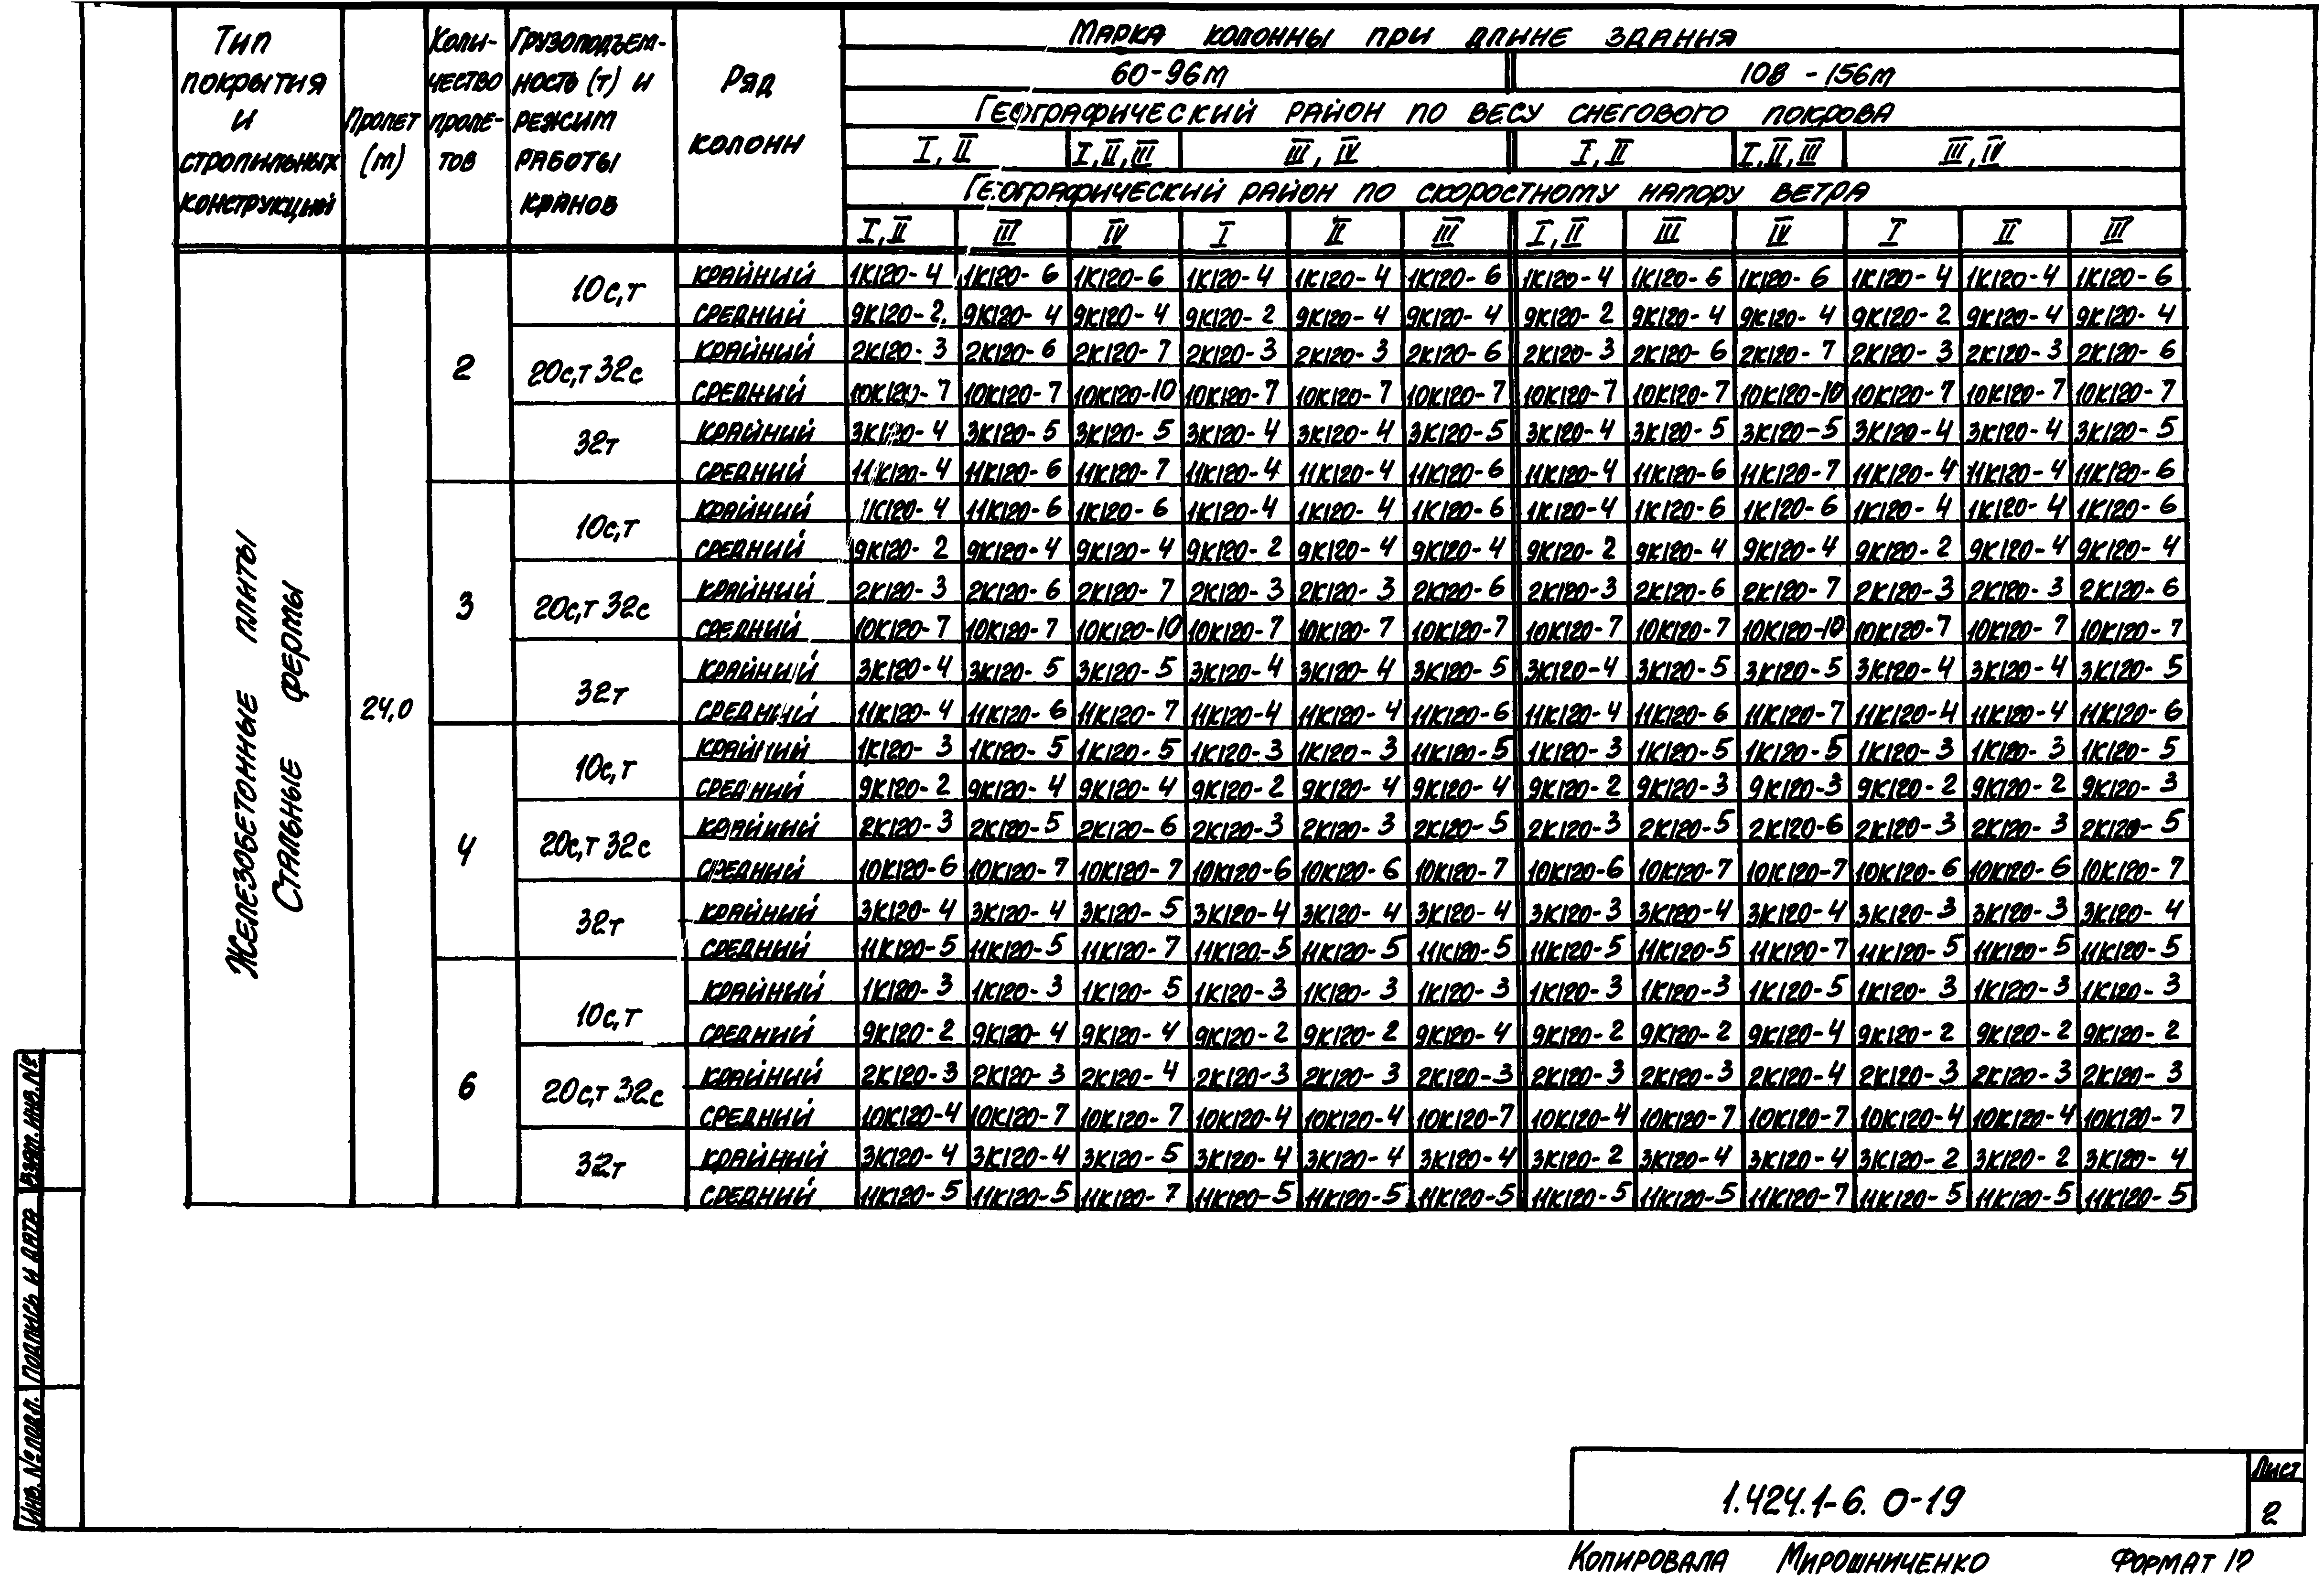 Тип покрытия и стропильных конструкций
Пролет (м)
Коли-чество проле-тов
Грузоподъем-ность (т) и режим работы кранов
Ряд колонн
Марка колонны при длине здания
60-96м 108-156м
Географический район по весу снегового покрова
I, II I, II, III III, IV I, II I, II, III III, IV
Географический район по скоростному напору ветра
I, II III IV I II III I, II III IV I II III
Железобетонные плиты
Стальные фермы
24,0
2
10с,т
крайний 1К120-4 1К120-6 1К120-6 1К120-4 1К120-4 1К120-6 1К120-4 1К120-6 1К120-6 1К120-4 1К120-4 1К120-6
средний 9К120-2 9К120-4 9К120-4 9К120-2 9К120-4 9К120-4 9К120-2 9К120-4 9К120-4 9К120-2 9К120-4 9К120-4
20с,т 32с
крайний 2К120-3 2К120-6 2К120-7 2К120-3 2К120-3 2К120-6 2К120-3 2К120-6 2К120-7 2К120-3 2К120-3 2К120-6
средний 10К120-7 10К120-7 10К120-10 10К120-7 10К120-7 10К120-7 10К120-7 10К120-7 10К120-10 10К120-7 10К120-7 10К120-7
32т
крайний 3К120-4 3К120-5 3К120-5 3К120-4 3К120-4 3К120-5 3К120-4 3К120-5 3К120-5 3К120-4 3К120-4 3К120-5
средний 11К120-4 11К120-6 11К120-7 11К120-4 11К120-4 11К120-6 11К120-4 11К120-6 11К120-7 11К120-4 11К120-4 11К120-6
3
10с,т
крайний 1К120-4 11К120-6 1К120-6 1К120-4 1К120-4 1К120-6 1К120-4 1К120-6 1К120-6 1К120-4 1К120-4 1К120-6
средний 9К120-2 9К120-4 9К120-4 9К120-2 9К120-4 9К120-4 9К120-2 9К120-4 9К120-4 9К120-2 9К120-4 9К120-4
20с,т 32с
крайний 2К120-3 2К120-6 2К120-7 2К120-3 2К120-3 2К120-6 2К120-3 2К120-6 2К120-7 2К120-3 2К120-3 2К120-6
средний 10К120-7 10К120-7 10К120-10 10К120-7 10К120-7 10К120-7 10К120-7 10К120-7 10К120-10 10К120-7 10К120-7 10К120-7
32т
крайний 3К120-4 3К120-5 3К120-5 3К120-4 3К120-4 3К120-5 3К120-4 3К120-5 3К120-5 3К120-4 3К120-4 3К120-5
средний 11К120-4 11К120-6 11К120-7 11К120-4 11К120-4 11К120-6 11К120-4 11К120-6 11К120-7 11К120-4 11К120-4 11К120-6
4
10с,т
крайний 1К120-3 1К120-5 1К120-5 1К120-3 1К120-3 11К120-5 1К120-3 1К120-5 1К120-5 1К120-3 1К120-3 1К120-5
средний 9К120-2 9К120-4 9К120-4 9К120-2 9К120-4 9К120-4 9К120-2 9К120-3 9К120-3 9К120-2 9К120-2 9К120-3
20с,т 32с
крайний 2К120-3 2К120-5 2К120-6 2К120-3 2К120-3 2К120-5 2К120-3 2К120-5 2К120-6 2К120-3 2К120-3 2К120-5
средний 10К120-6 10К120-7 10К120-7 10К120-6 10К120-6 10К120-7 10К120-6 10К120-7 10К120-7 10К120-6 10К120-6 10К120-7
32т
крайний 3К120-4 3К120-4 3К120-5 3К120-4 3К120-4 3К120-4 3К120-3 3К120-4 3К120-4 3К120-3 3К120-3 3К120-4
средний 11К120-5 11К120-5 11К120-7 11К120-5 11К120-5 11К120-5 11К120-5 11К120-5 11К120-7 11К120-5 11К120-5 11К120-5
6
10с,т
крайний 1К120-3 1К120-3 1К120-5 1К120-3 1К120-3 1К120-3 1К120-3 1К120-3 1К120-5 1К120-3 1К120-3 1К120-3
средний 9К120-2 9К120-4 9К120-4 9К120-2 9К120-2 9К120-4 9К120-2 9К120-2 9К120-4 9К120-2 9К120-2 9К120-2
20с,т 32с
крайний 2К120-3 2К120-3 2К120-4 2К120-3 2К120-3 2К120-3 2К120-3 2К120-3 2К120-4 2К120-3 2К120-3 2К120-3
средний 10К120-4 10К120-7 10К120-7 10К120-4 10К120-4 10К120-7 10К120-4 10К120-7 10К120-7 10К120-4 10К120-4 10К120-7
32т
крайний 3К120-4 3К120-4 3К120-5 3К120-4 3К120-4 3К120-4 3К120-2 3К120-4 3К120-4 3К120-2 3К120-2 3К120-4
средний 11К120-5 11К120-5 11К120-7 11К120-5 11К120-5 11К120-5 11К120-5 11К120-5 11К120-7 11К120-5 11К120-5 11К120-5
Взам. инв. №
Подпись и дата
Инв. № подл.
1.424.1-6. 0-19
Лист
2
Копировала Мирошниченко Формат 12